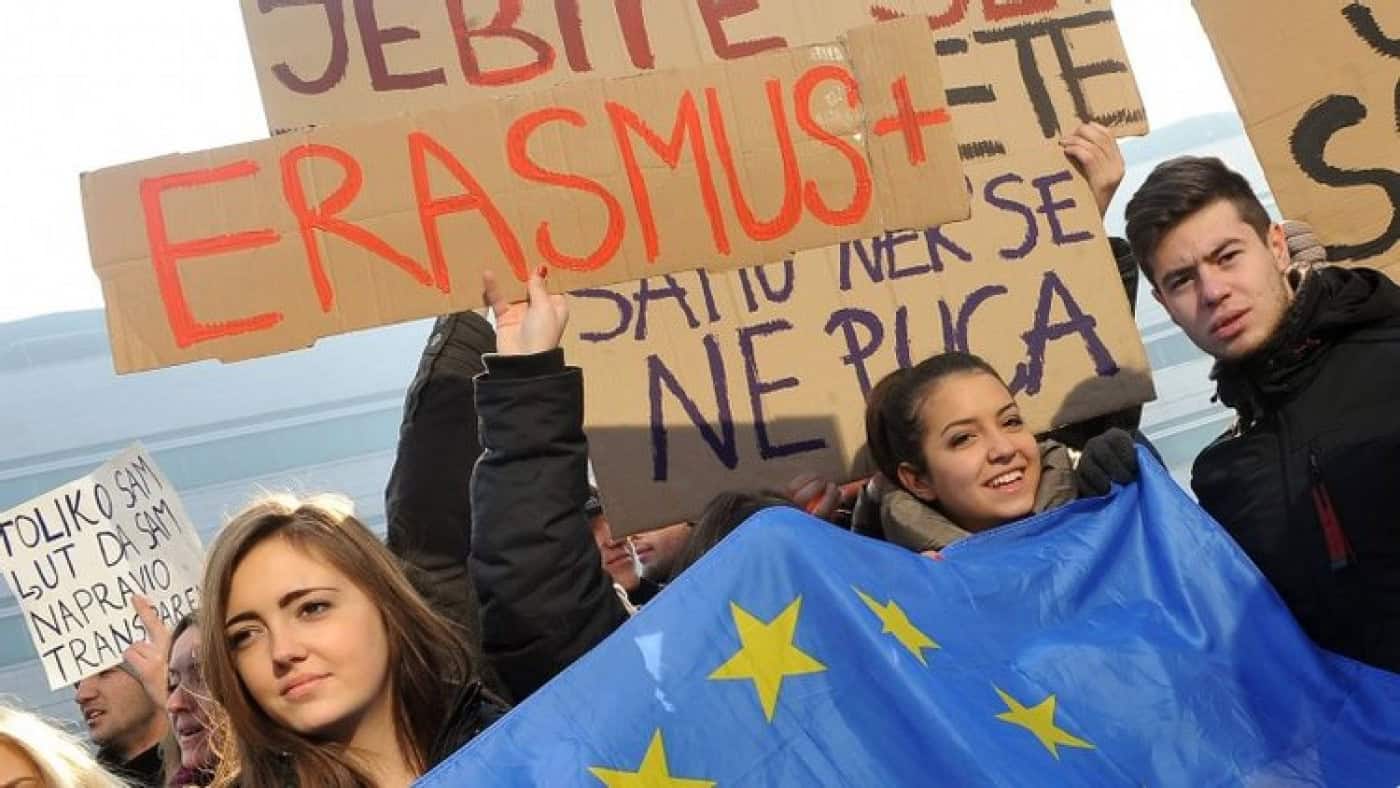 JEBITE SE
ETE
ERASMUS+
SAMO NEK SE
NE PUCA
TOLIKO SAM
LJUT DA SAM
NAPRAVIO
TRANSPARE